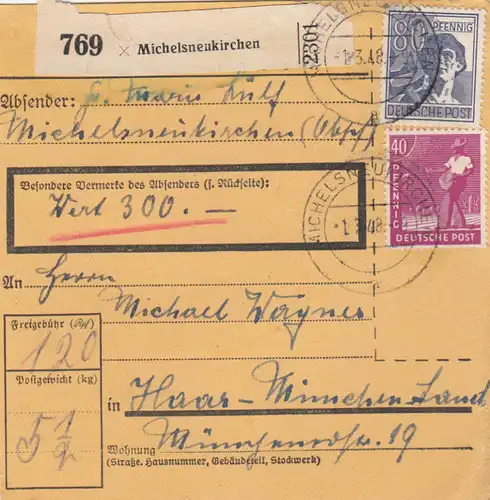 769 × Michelsneukirchen
2301
MICHELSNEUKIRCHEN
-1.3.48
80 PFENNIG
DEUTSCHE POST
Absender: Marie
Michelsneukirchen (Obpf)
Besondere Vermerke des Absenders (s. Rückseite):
Wert 300.—
40 PFENNIG
DEUTSCHE POST
MICHELSNEUKIRCHEN
-1.3.48
An Herrn
Michael Wagner
Freigebühr (Rpf)
120
Postgewicht (kg)
5 1/2
in Haar-München Land
Münchenerstr. 19
Wohnung
(Straße, Hausnummer, Gebäudeteil, Stockwerk)